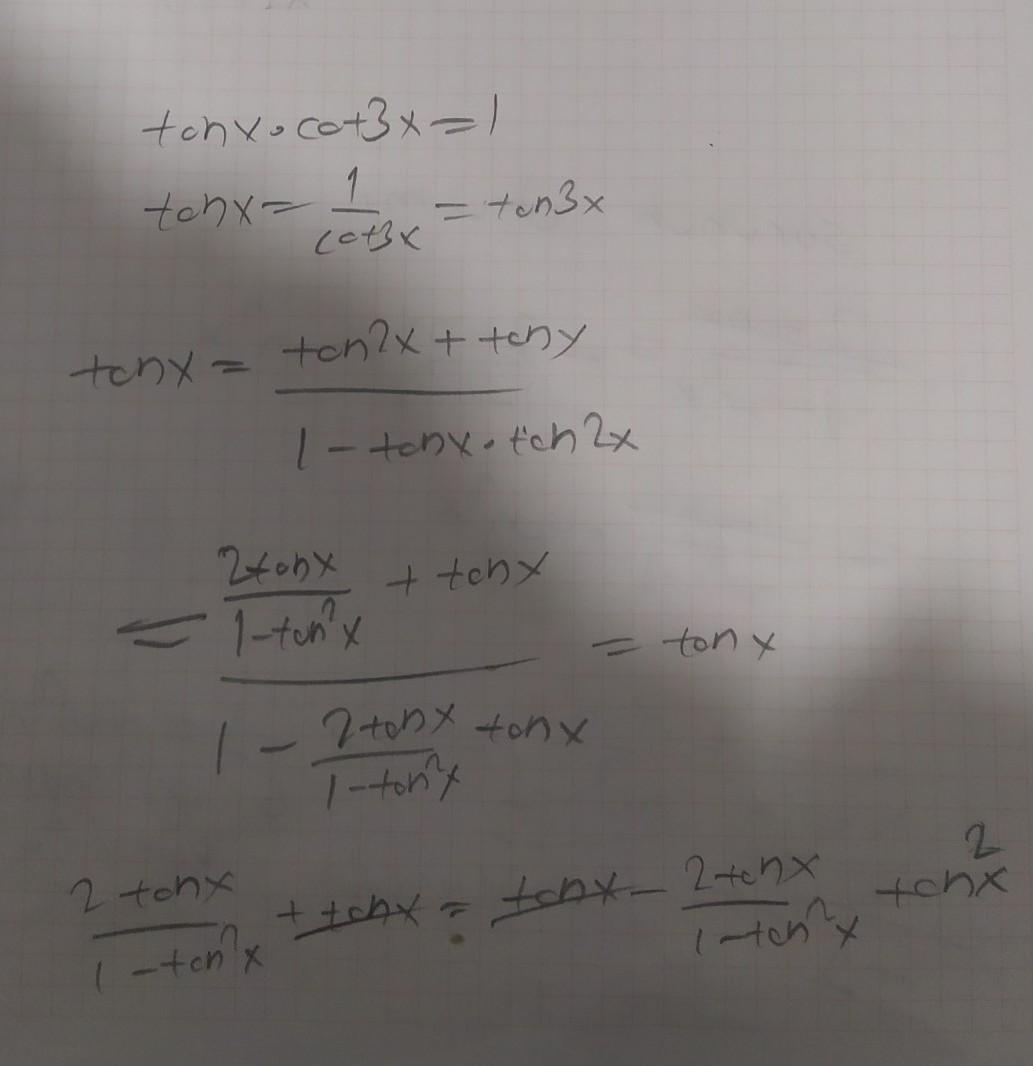 tanx·cot3x=1
tanx=1/cot3x=tan3x
tanx=(tan2x+tany)/(1-tanx·tan2x)
=((2tanx)/(1-tan²x)+tanx)/(1-(2tanx)/(1-tan²x) tanx)=tanx
(2tanx)/(1-tan²x)+tanx=tanx-(2tanx)/(1-tan²x) tan²x